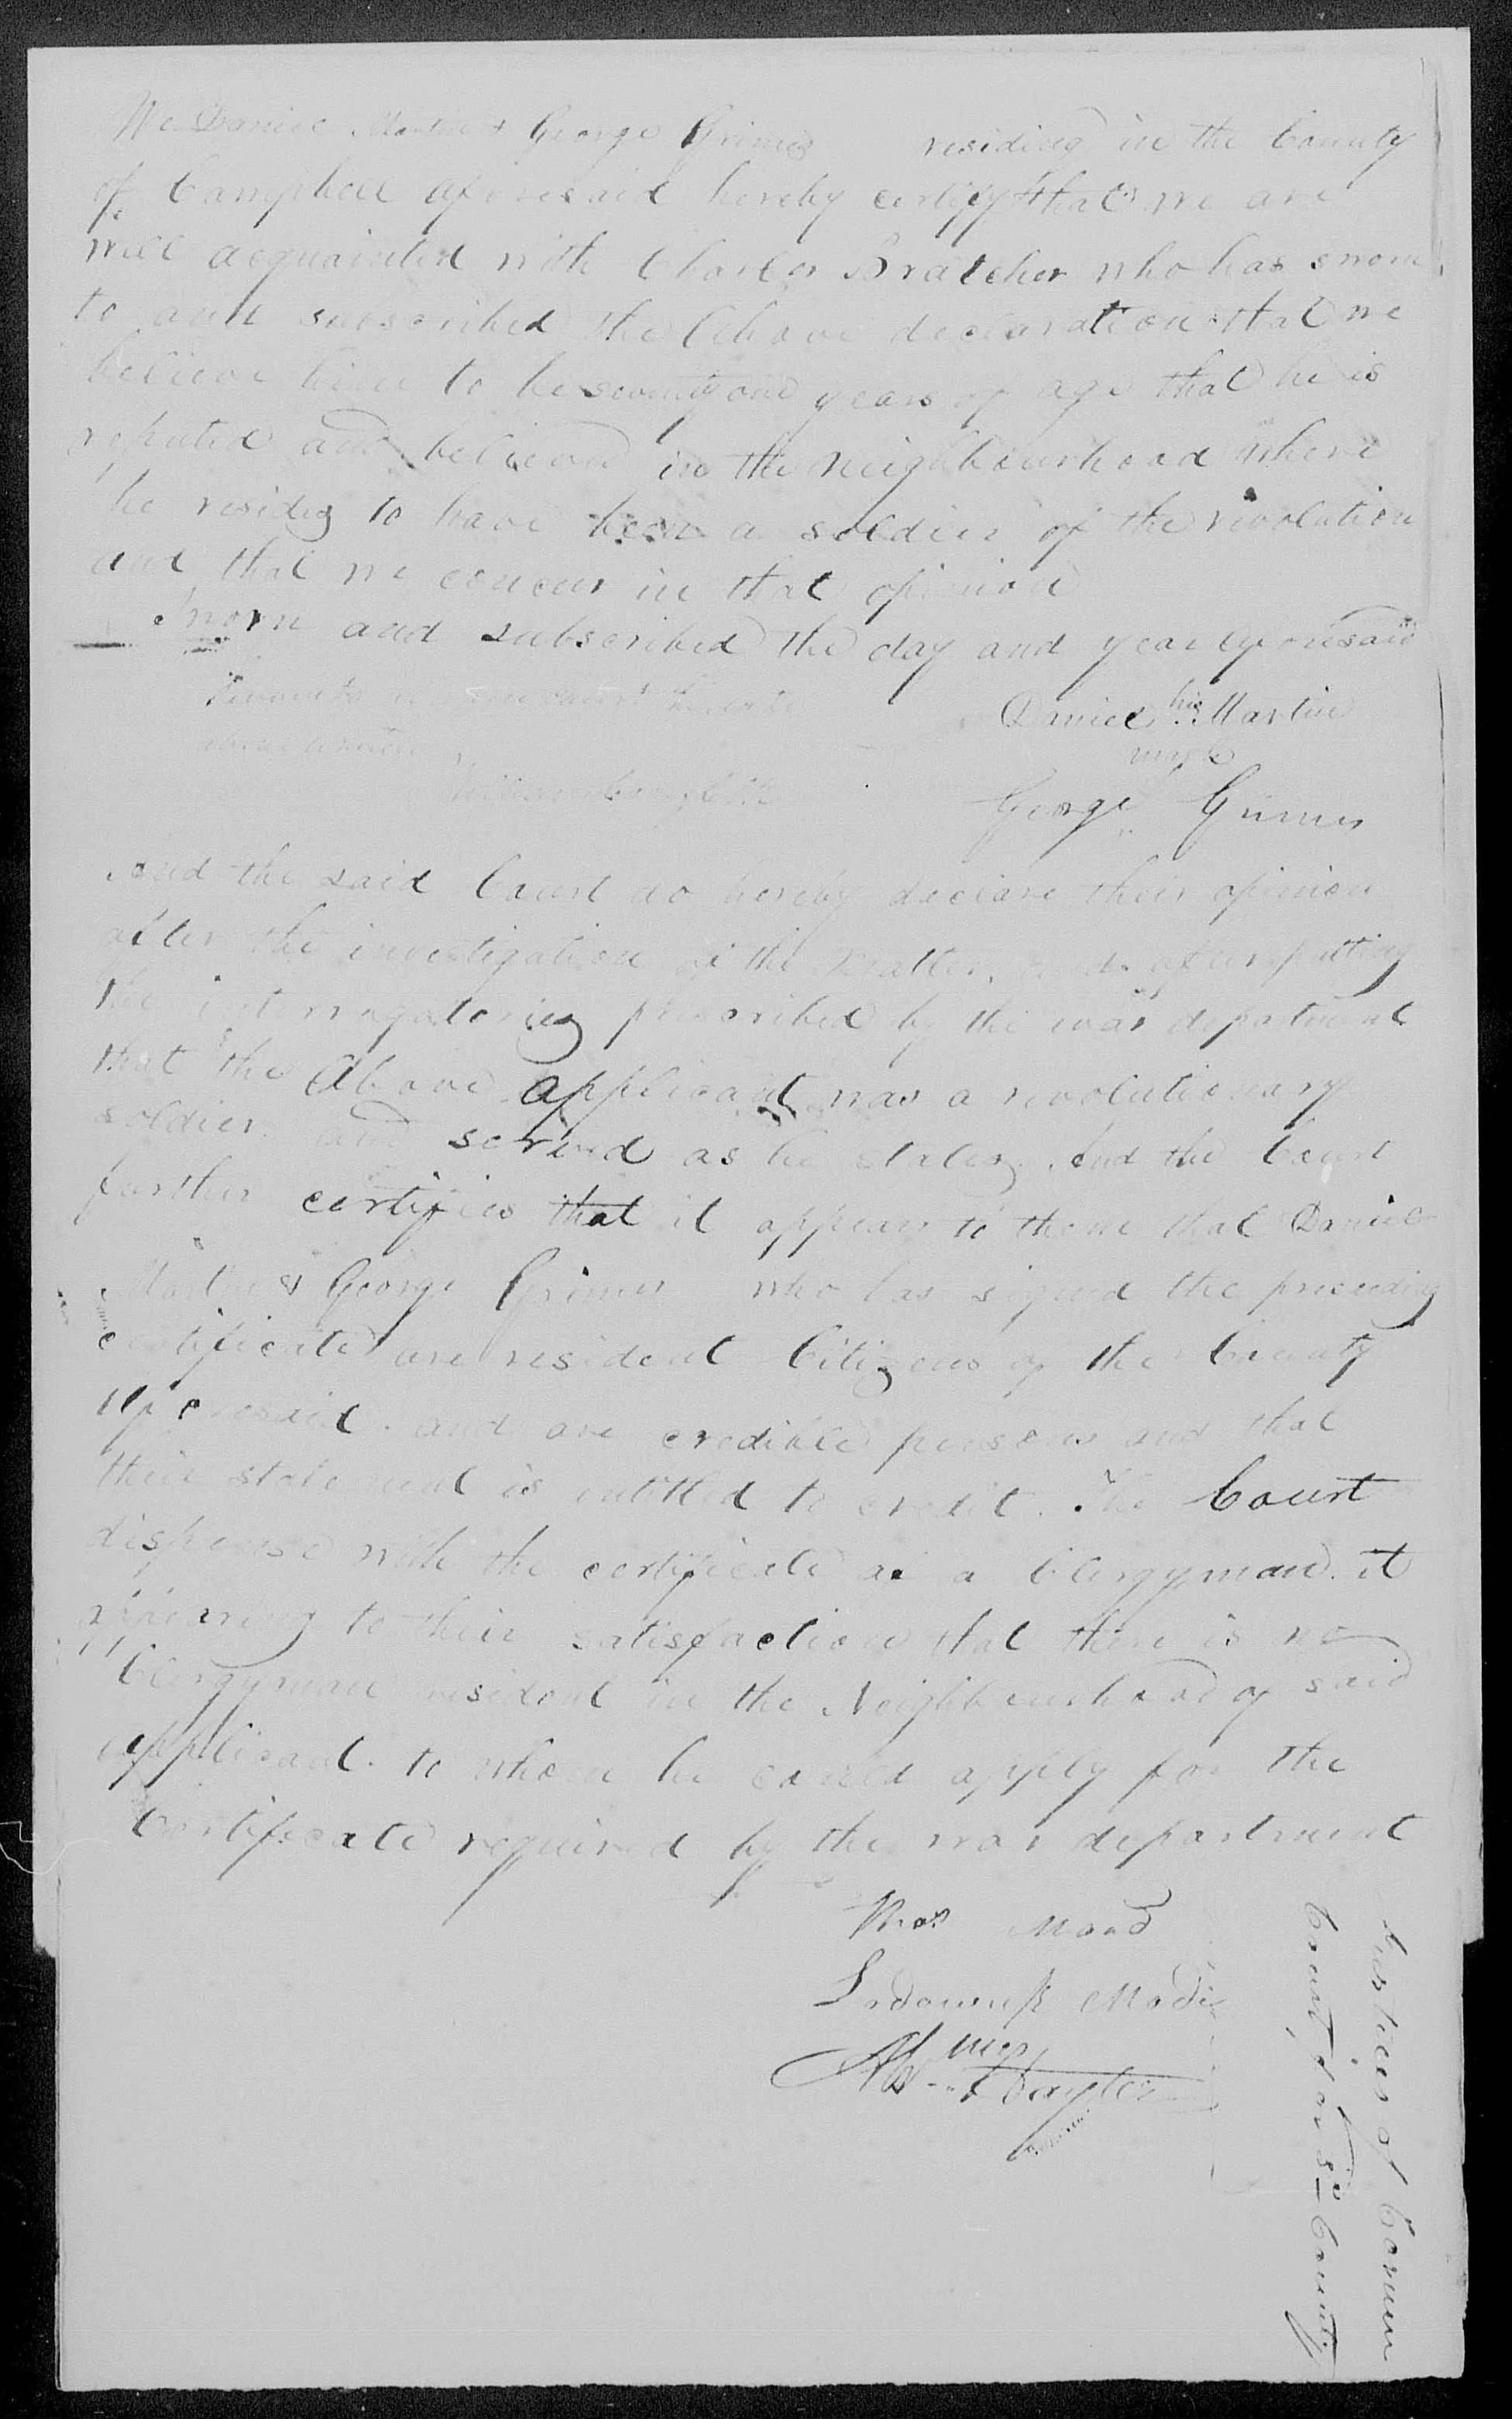 We Daniel Martin & George Grimes residing in the County
of Campbell aforesaid hereby certify that we are
well acquainted with Charles Bratcher who has sworn
to and subscribed the Above declaration that we
believe him to be seventy one years of age that he is
reputed and believed in the neighbourhood where
he resides to have been a soldier of the revolution
and that we concur in that opinion
Sworn and subscribed the day and year aforesaid
Daniel his Martin
mark
above written
George Grimes
And the said Court do hereby declare their opinion
after the investigation of the matter, and after putting
the interrogatories prescribed by the war department
that the Above applicant was a revolutionary
soldier and served as he states. And the Court
further certifies that it appears to them that Daniel
Martin & George Grimes who has signed the preceeding
certificate are resident Citizens of the County
Aforesaid. and are credible persons and that
their statement is intitled to credit. The Court
dispense with the certificate of a Clergyman. it
appearing to their satisfaction that there is no
Clergyman resident in the Neighbourhood of said
applicant. to whom he could apply for the
Certificate required by the war department
Thos
Justices of
Court, for sd County